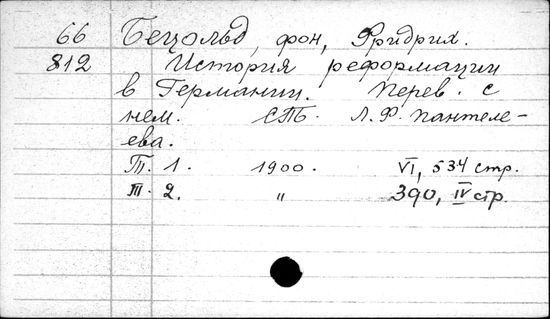 66 Бецольд, фон, Фридрих.
812 История реформации
в Германии. Перев. с
нем. СПБ. Л. Ф. Пантеле-
ева.
Т. 1. 1900. VI, 534 стр.
Т. 2. " 390, IV стр.